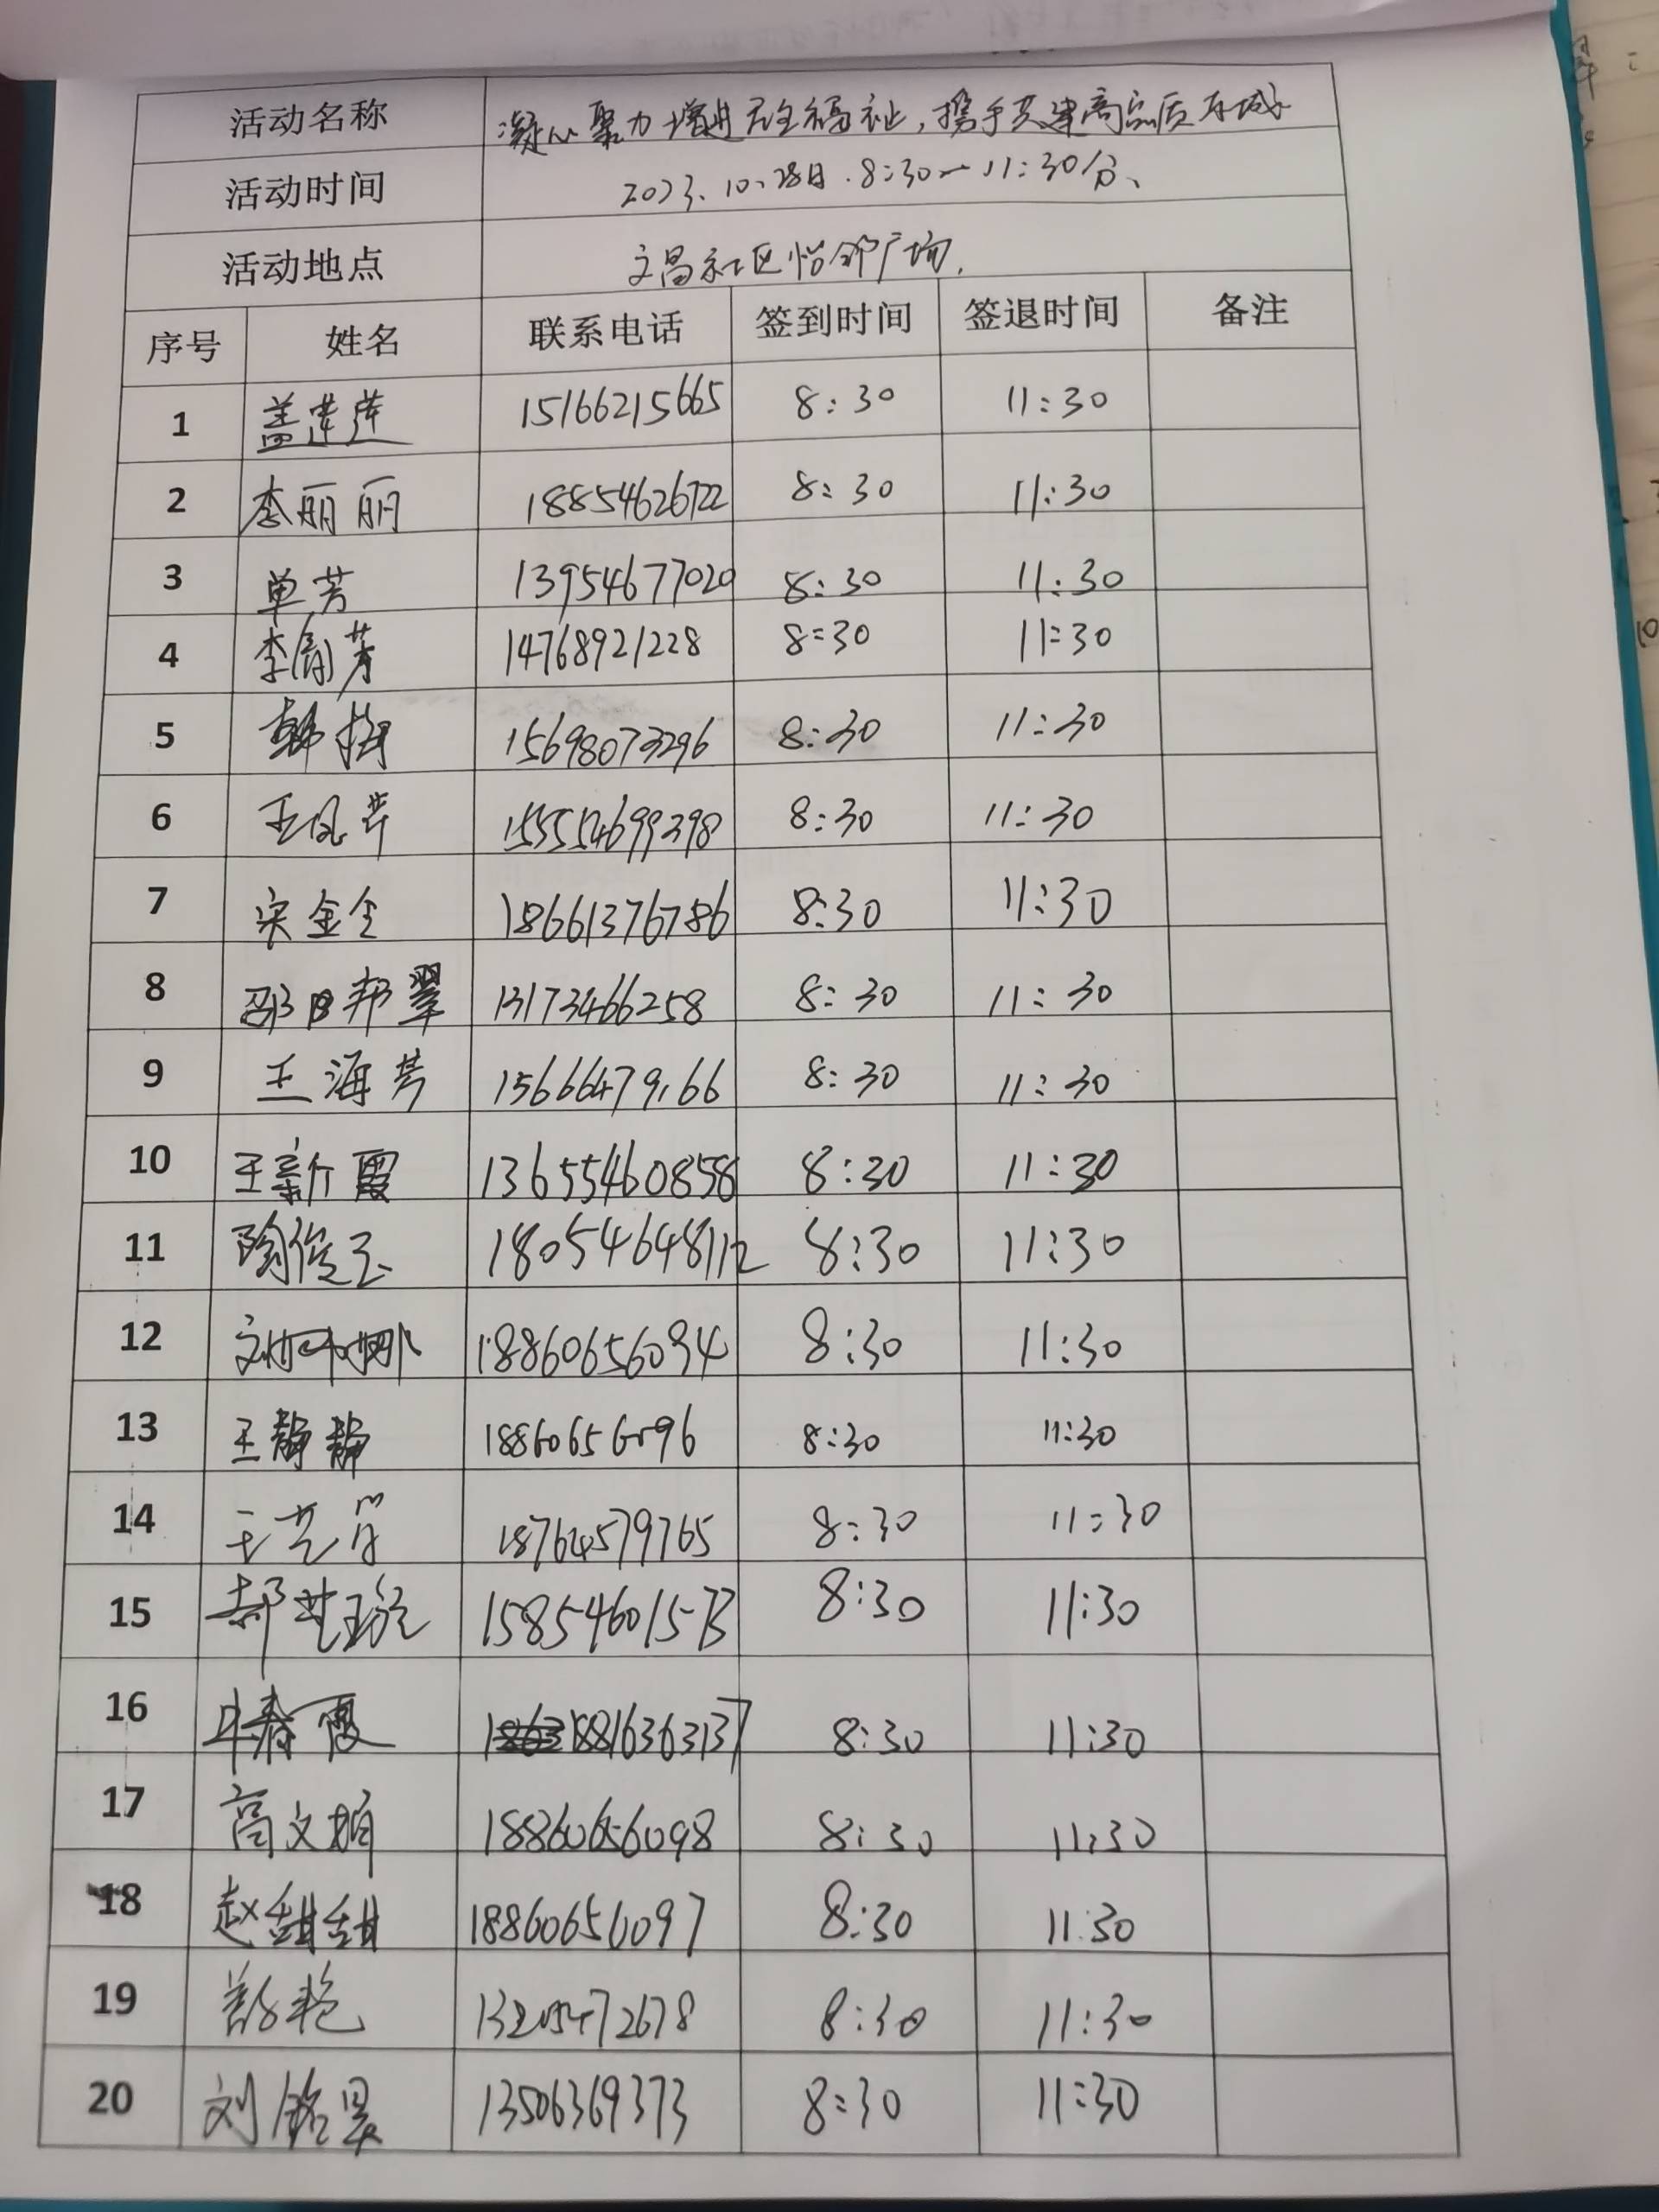 活动名称 凝心聚力增进民生福祉，携手共建高品质东城
活动时间 2023、10、28日.8:30—11:30分、
活动地点 文昌社区怡邻广场.
序号 姓名 联系电话 签到时间 签退时间 备注
1 盖莲莲 15166215665 8:30 11:30
2 李丽丽 18854626722 8:30 11:30
3 单芳 13954677020 8:30 11:30
4 李 芳 14768921228 8:30 11:30
5 韩 15698073296 8:30 11:30
6 王凤芹 15554699398 8:30 11:30
7 宋金全 18661376786 8:30 11:30
8 邵邦翠 13173466258 8:30 11:30
9 王海芳 15666479166 8:30 11:30
10 王新霞 13655460858 8:30 11:30
11 陶俊玉 18054648112 8:30 11:30
12 刘娜娜 18860656094 8:30 11:30
13 王静静 18860656096 8:30 11:30
14 王艺 18764579765 8:30 11:30
15 郝 15854601573 8:30 11:30
16 牛春霞 18816363137 8:30 11:30
17 高文娟 18860656098 8:30 11:30
18 赵甜甜 18860656097 8:30 11:30
19 郑艳 8:30 11:30
20 刘铭昊 13506369373 8:30 11:30